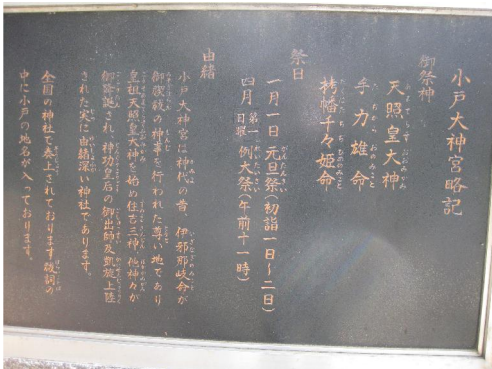 小戸大神宮略記
御祭神
天照皇大神
手力雄命
栲幡千々姫命
祭日
一月一日 元旦祭(初詣一日〜二日)
四月 第一日曜 例大祭(午前十一時)
由緒
小戸大神宮は神代の昔、伊邪那岐命が
御禊祓の神事を行われた尊い地であり
皇祖天照皇大神を始め住吉三神、他神々が
御降誕され、神功皇后の御出師及凱旋上陸
された実に由緒深い神社であります。
全国の神社で奏上されております祓詞の
中に小戸の地名が入っております。